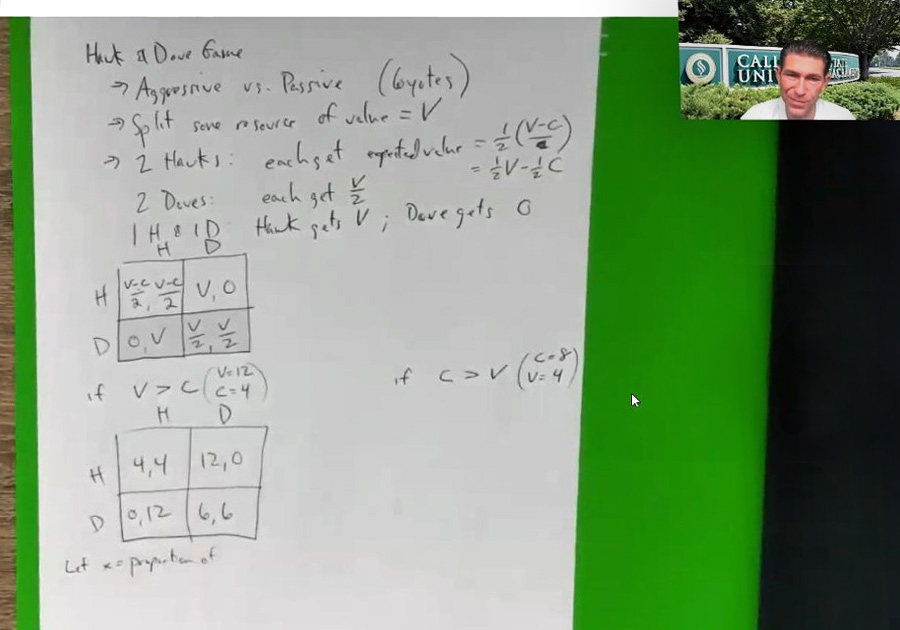 Hawk & Dove Game
→ Aggressive vs. Passive (Coyotes)
→ Split some resource of value = V
→ 2 Hawks: each get expected value = 1/2 (V-C)
= 1/2 V - 1/2 C
2 Doves: each get V/2
1 H & 1 D Hawk gets V ; Dove gets 0
H D
H V-C/2, V-C/2 V, 0
D 0, V V/2, V/2
if V > C (V=12 C=4)
if C > V (C=8 V=4)
H D
H 4,4 12,0
D 0,12 6,6
Let x = proportion of
CALI
UNI